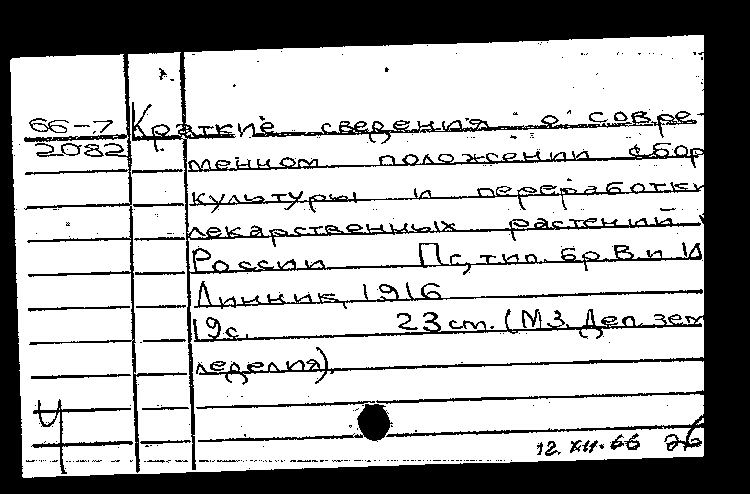 66-7 Краткие сведения о совре-
2082 менном положении сбор
культуры и переработки
лекарственных растений
России Пг, тип. бр. В. и И
Линник, 1916
19с. 23 см. (М.З. Деп. зем
леделия).
Ч
12.XII.66